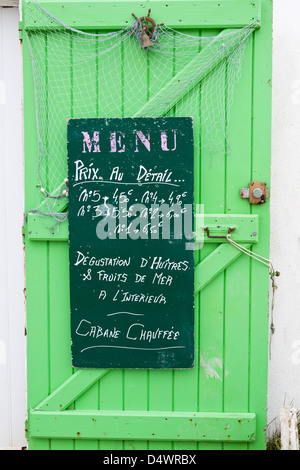 MENU
PRIX AU DÉTAIL...
N°5 → 4,5€ - N°4 → 4,8€
N°3 → 5,5€ - N°2 → 6€
N°1 → 6,5€
DÉGUSTATION D'HUÎTRES
& FRUITS DE MER
A L'INTERIEUR
CABANE CHAUFFÉE
alamy
Image ID: D4WRBX
www.alamy.com